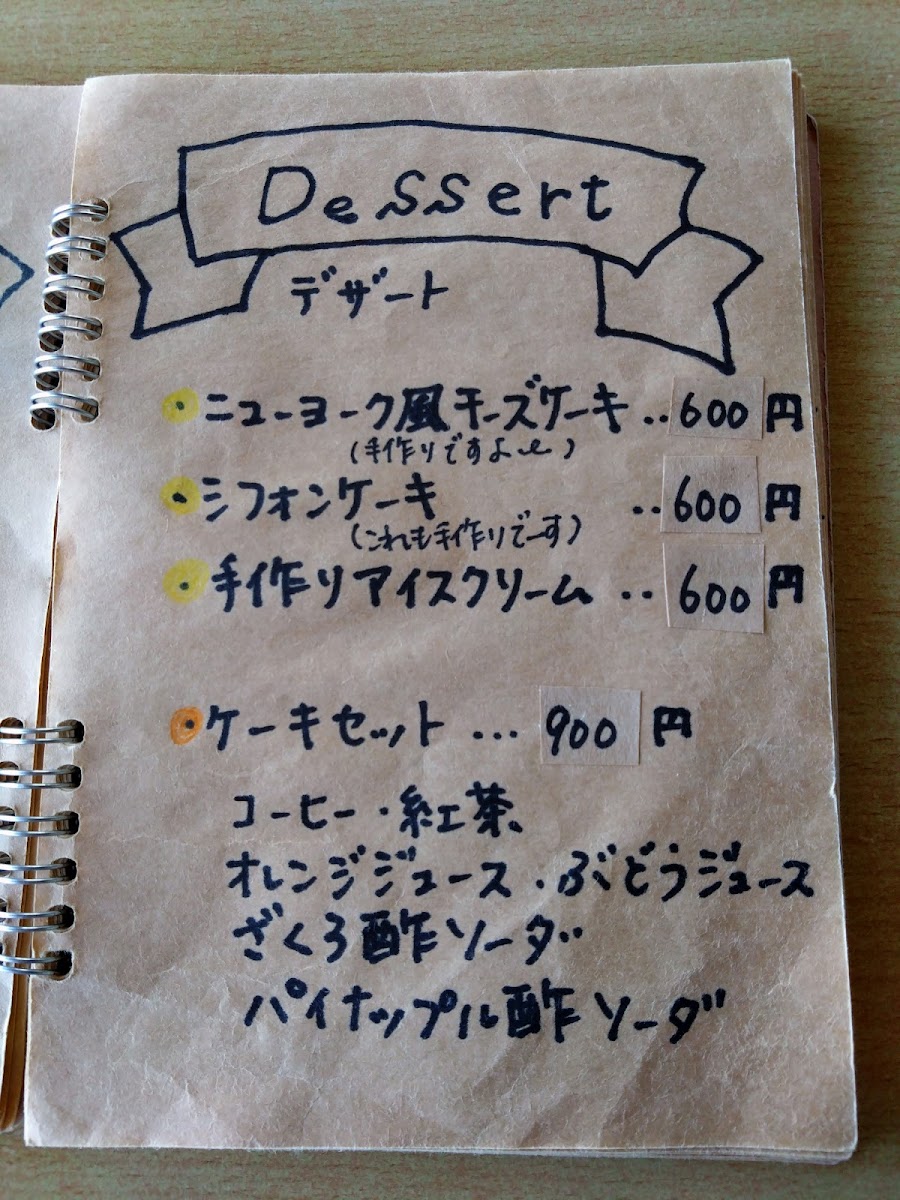 Dessert
デザート
・ニューヨーク風チーズケーキ‥600円
(手作りですよ〜)
・シフォンケーキ ‥600円
(これも手作りでーす)
・手作りアイスクリーム‥600円
・ケーキセット…900円
コーヒー・紅茶、
オレンジジュース・ぶどうジュース
ざくろ酢ソーダ
パイナップル酢ソーダ